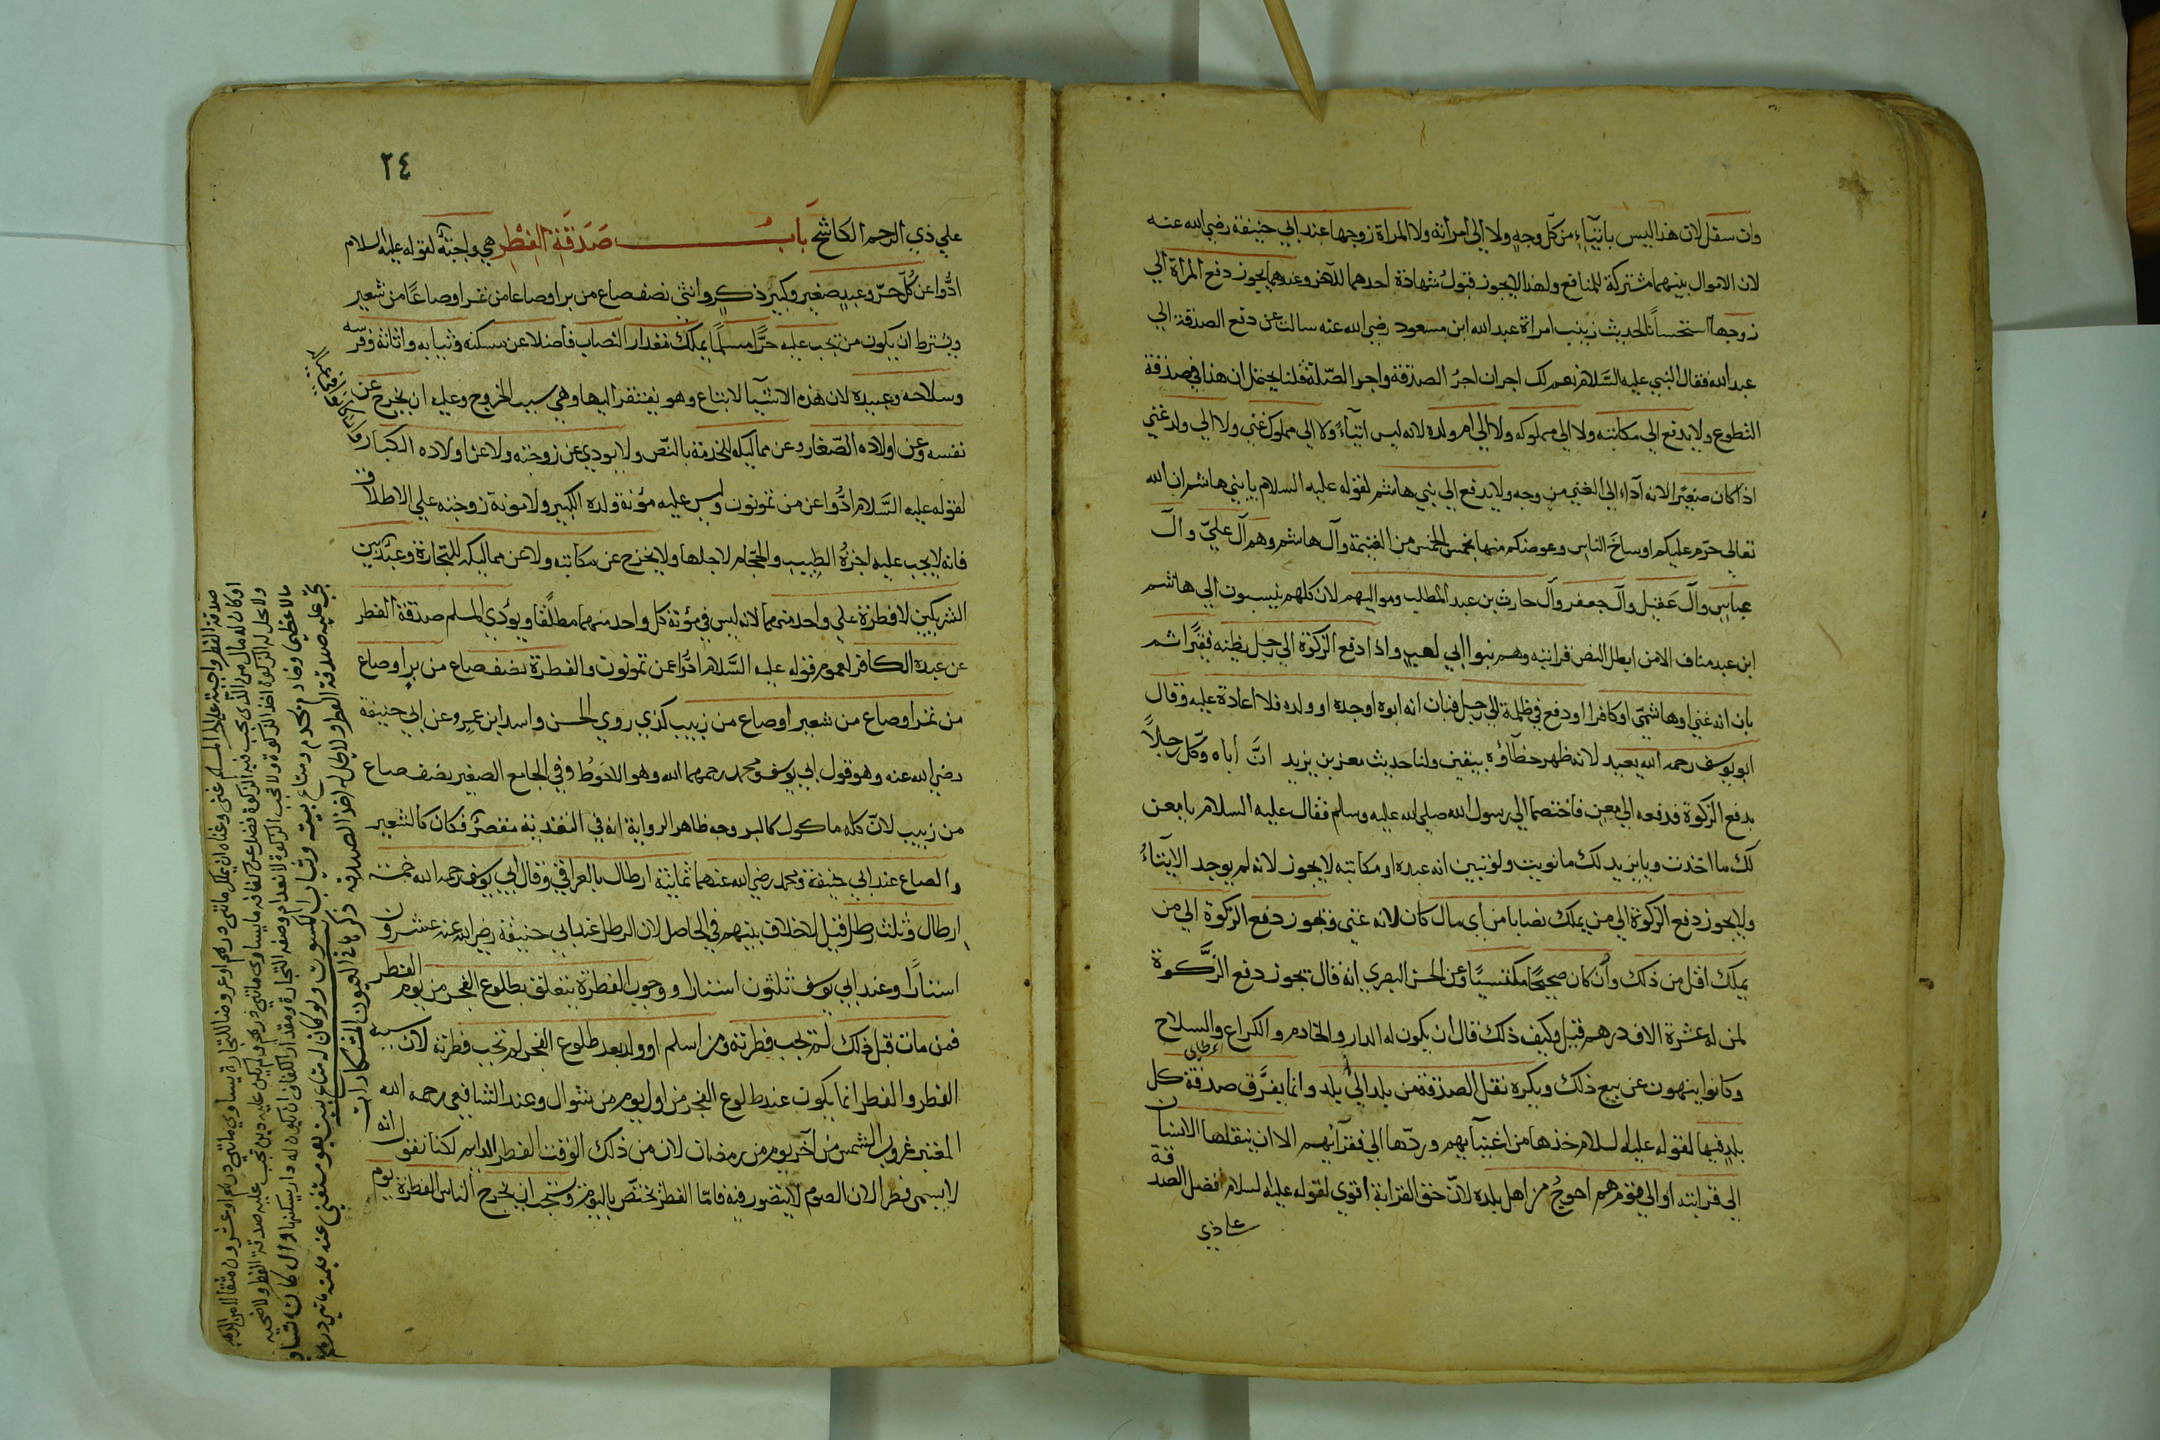 وان سفل لان هذا ليس بايتاء من كل وجه ولا الى امراته ولا المراة زوجها عند ابي حنيفة رضي الله عنه
لان الاموال بينهما مشتركة للمنافع ولهذا لايجوز قبول شهادة احدهما للآخر وعندهما يجوز دفع المراة الي
زوجها استحسانا لحديث زينب امراة عبد الله ابن مسعود رضي الله عنه سالت عن دفع الصدقة الي
عبد الله فقال النبي عليه السلام نعم لك اجران اجر الصدقة واجر الصلة قلنا يحتمل ان هذا في صدقة
التطوع ولا يدفع الي مكاتبه ولا الي مملوكه ولا الي ام ولده لانه ليس ايتاء ولا الي مملوك غني ولا الي ولد غني
اذا كان صغيرا لانه آداء الى الغني من وجه ولا يدفع الي بني هاشم لقوله عليه السلام يا بني هاشم ان الله
تعالي حرم عليكم اوساخ الناس وعوضكم منها بخمس الخمس من الغنيمة وآل هاشم وهم آل علي وآل
عباس وآل عقيل وآل جعفر وآل حارث بن عبد المطلب ومواليهم لان كلهم ينسبون الي هاشم
ابن عبد مناف الا من ابطل النص قرابته وهم بنوا ابي لهب واذا دفع الزكوة الي رجل يظنه فقيرا ثم
بان انه غني او هاشمي او كافرا او دفع في ظلمة الي رجل فبان انه ابوه او جده او ولده فلا اعادة عليه وقال
ابو يوسف رحمه الله يعيد لانه ظهر خطاؤه بيقين ولنا حديث معن بن يزيد ان اباه وكل رجلا
بدفع الزكوة فدفعه الي معن فاختصما الي رسول الله صلي الله عليه وسلم فقال عليه السلام يا معن
لك ما اخذت ويا يزيد لك ما نويت ولو تبين انه عبده او مكاتبه لايجوز لانه لم يوجد الايتاء
ولا يجوز دفع الزكوة الي من يملك نصابا من اي مال كان لانه غني ويجوز دفع الزكوة الي من
يملك اقل من ذلك وان كان صحيحا مكتسبا وعن الحسن البصري انه قال يجوز دفع الزكوة
لمن له عشرة الاف درهم قيل وكيف ذلك قال ان يكون له الدار والخادم والكراع والسلاح
وكانوا ينهون عن بيع ذلك ويكره نقل الصدقة من بلد الي بلد وانما يفرق صدقة كل
بلد فيها لقوله عليه السلام خذها من اغنيآيهم وردها الي فقرآئهم الا ان ينقلها الانسان
الي قرابته او الي قوم هم احوج من اهل بلده لان حق القرابة اقوي لقوله عليه السلام افضل الصدقة
علي ذي
٢٤
علي ذي الرحم الكاشح باب صدقة الفطر هي واجبة لقوله عليه السلام
ادوا عن كل حر وعبد صغير وكبير ذكر وانثى نصف صاع من بر او صاعا من تمر او صاعا من شعير
ويشترط ان يكون من تجب عليه حرا مسلما يملك مقدار النصاب فاضلا عن مسكنه وثيابه واثاثه وفرسه
وسلاحه وعبيده لان هذه الاشيآ لا تباع وهو يفتقر اليها وهي سبب الخروج وعليه ان يخرج عن
نفسه وعن اولاده الصغار وعن مماليكه للخدمة بالنص ولا يودي عن زوجته ولا عن اولاده الكبار
لقوله عليه السلام ادوا عن من تمونون وليس عليه مؤنة ولده الكبير ولا مونة زوجته علي الاطلاق
فانه لايجب عليه اجرة الطبيب والحجام لاجلها ولا يخرج عن مكاتبه ولا عن مماليكه للتجارة وعبد بين
الشريكين لا فطرة علي واحد منهما لانه ليس في مؤنة كل واحد منهما مطلقا ويؤدي المسلم صدقة الفطر
عن عبده الكافر لعموم قوله عليه السلام ادوا عمن تمونون والفطرة نصف صاع من بر او صاع
من تمر او صاع من شعير او صاع من زبيب كذي روي الحسن واسد ابن عمرو عن ابي حنيفة
رضي الله عنه وهو قول ابي يوسف ومحمد رحمهما الله وهو الاحوط وفي الجامع الصغير نصف صاع
من زبيب لان كله ماكول كالبر وجه ظاهر الرواية انه في التغذية فكان كالشعير
والصاع عند ابي حنيفة ومحمد رضي الله عنهما ثمانية ارطال بالعراقي وقال ابي يوسف رحمه الله خمسة
ارطال وثلث رطل قيل لا خلاف بينهم في الحاصل لان الرطل عند ابي حنيفة رضي الله عنه عشرون
استارا وعند ابي يوسف ثلثون استارا ووجوب الفطرة يتعلق بطلوع الفجر من يوم الفطر
فمن مات قبل ذلك لم تجب فطرته ومن اسلم او ولد بعد طلوع الفجر لم تجب فطرته لان سببه
الفطر والفطر انما يكون عند طلوع الفجر من اول يوم من شوال وعند الشافعي رحمه الله
المعتبر غروب الشمس من آخر يوم من رمضان لان من ذلك الوقت الفطر الدايم لكنا نقول انه
لا يسمي فطرا لان الصوم لا يتصور فيه فاما الفطر يختص باليوم ويستحب ان يخرج الناس الفطرة يوم
صدقة الفطر واجبة علي المسلم غني وغناه ان يملك مائتي درهم او عروضا للتجارة يساوي مائتي درهم او عشرون مثقالا من الذهب
او كان له مال سوى الذي يجب فيه الزكوة فضل عن كفافه ما يساوي مائتي درهم ولم يكن عليه دين تجب عليه صدقة الفطر والاضحية
ولا يحل له الزكوة اخذ الزكوة ولا تجب الزكوة لانعدام وصفه التجارة ومقدار الكفاف ان يكون له دار يسكنها وان كان تساوي
مالا عظيما وخادم يخدم ومتاع بيته وثياب الكسوة ولو كان له متاع بيت هو مستغنى عنه قيمته مائتي درهم
تجب عليه صدقة الفطر ولا يحل له اخذ الصدقة ذكر ما في العيون